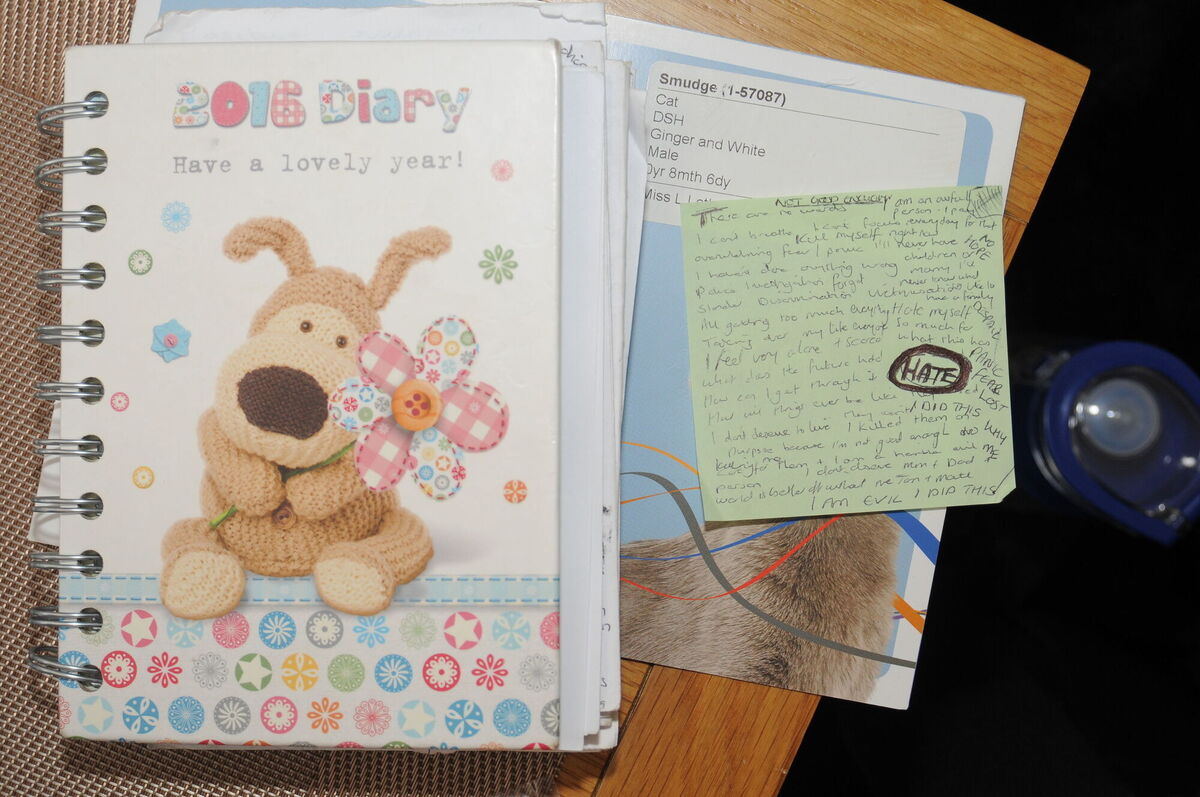 2016 Diary
Have a lovely year!
Smudge (1-57087)
Cat
DSH
Ginger and White
Male
0yr 8mth 6dy
Miss L
NOT GOOD ENOUGH
There are no words I am an awful
person. I pay
I can't breathe I can't focus everyday for that
Kill myself right now
overwhelming fear / panic I'll never have NO
HOPE
I haven't done anything wrong children or
marry I'll
Police investigation forgot never know what
Slander Discrimination Victimisation
have a family
All getting too much everything Hate myself DESPAIR
Taking over my life so much for
I feel very alone + scared what this has
PANIC
what does the future hold
HATE
FEAR
How can I get through it
LOST
How will things ever be like
I DID THIS
I don't deserve to live I killed them on
WHY
purpose because I'm not good enough
ME
care for them + I am a horrible evil
person I don't deserve Mum + Dad +
world is better off without me Tom + Matt
I AM EVIL I DID THIS